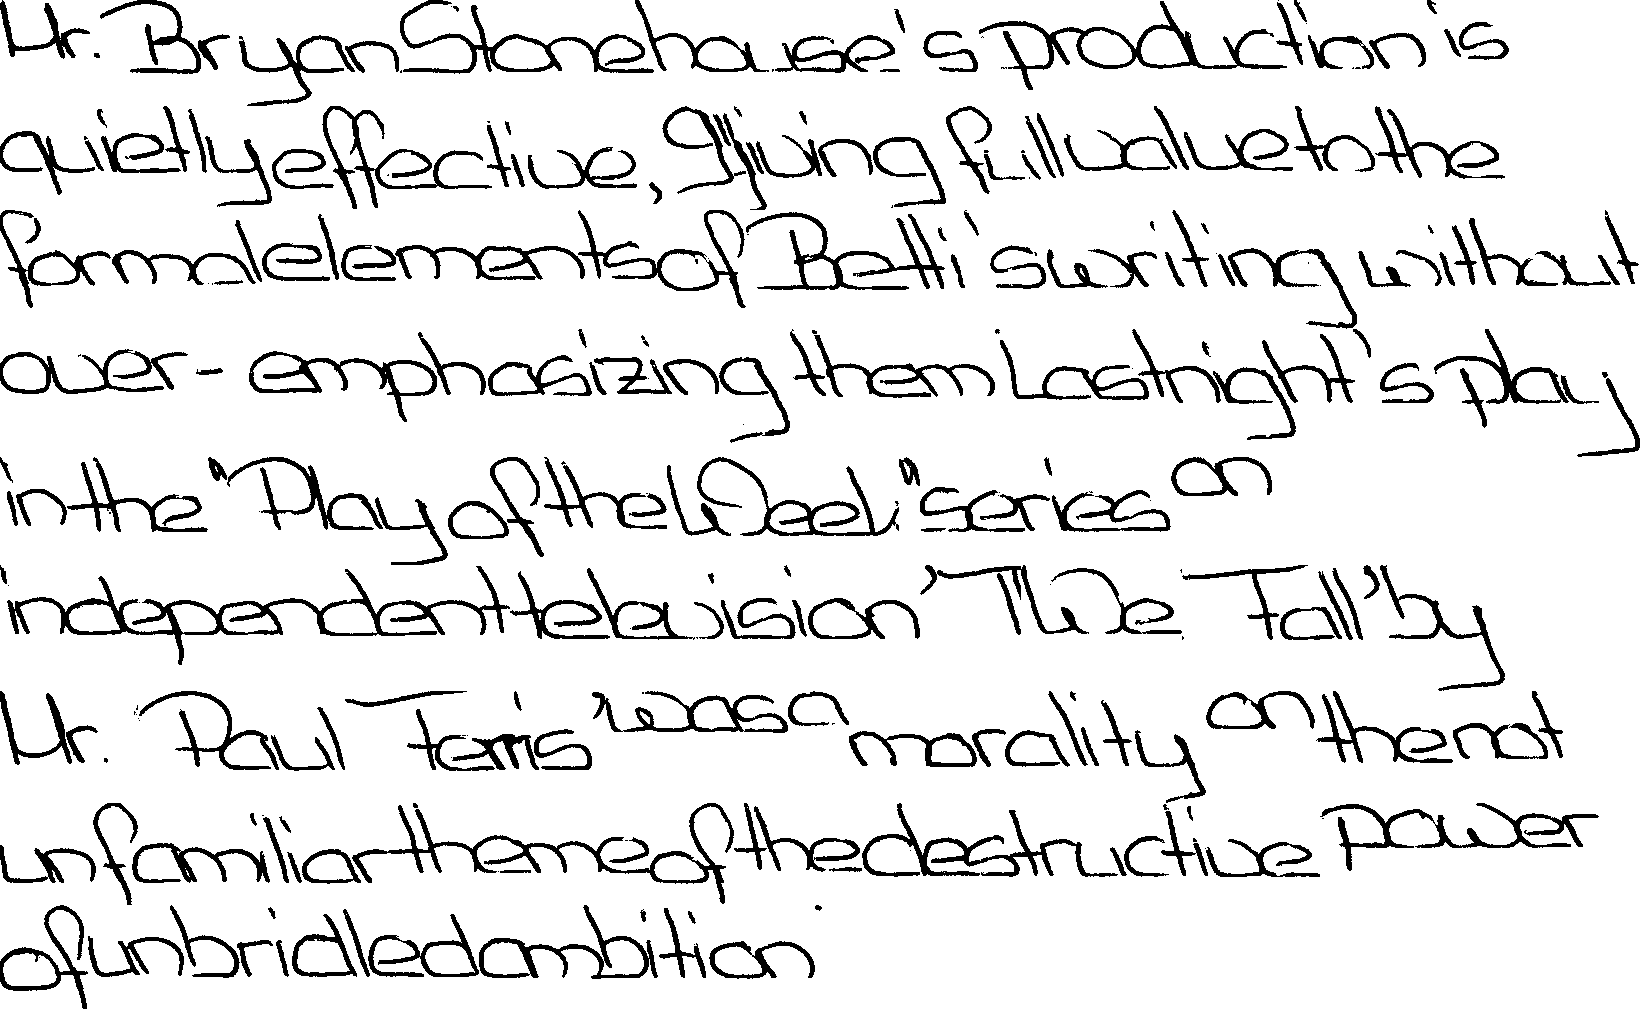 Mr. Bryan Stonehouse's production is
quietly effective, giving full value to the
formal elements of Betti's writing without
over-emphasizing them Last night's play
in the "Play of the Week" series on
independent television 'The Fall' by
Mr. Paul Ferris was a morality on the not
unfamiliar theme of the destructive power
of unbridled ambition.